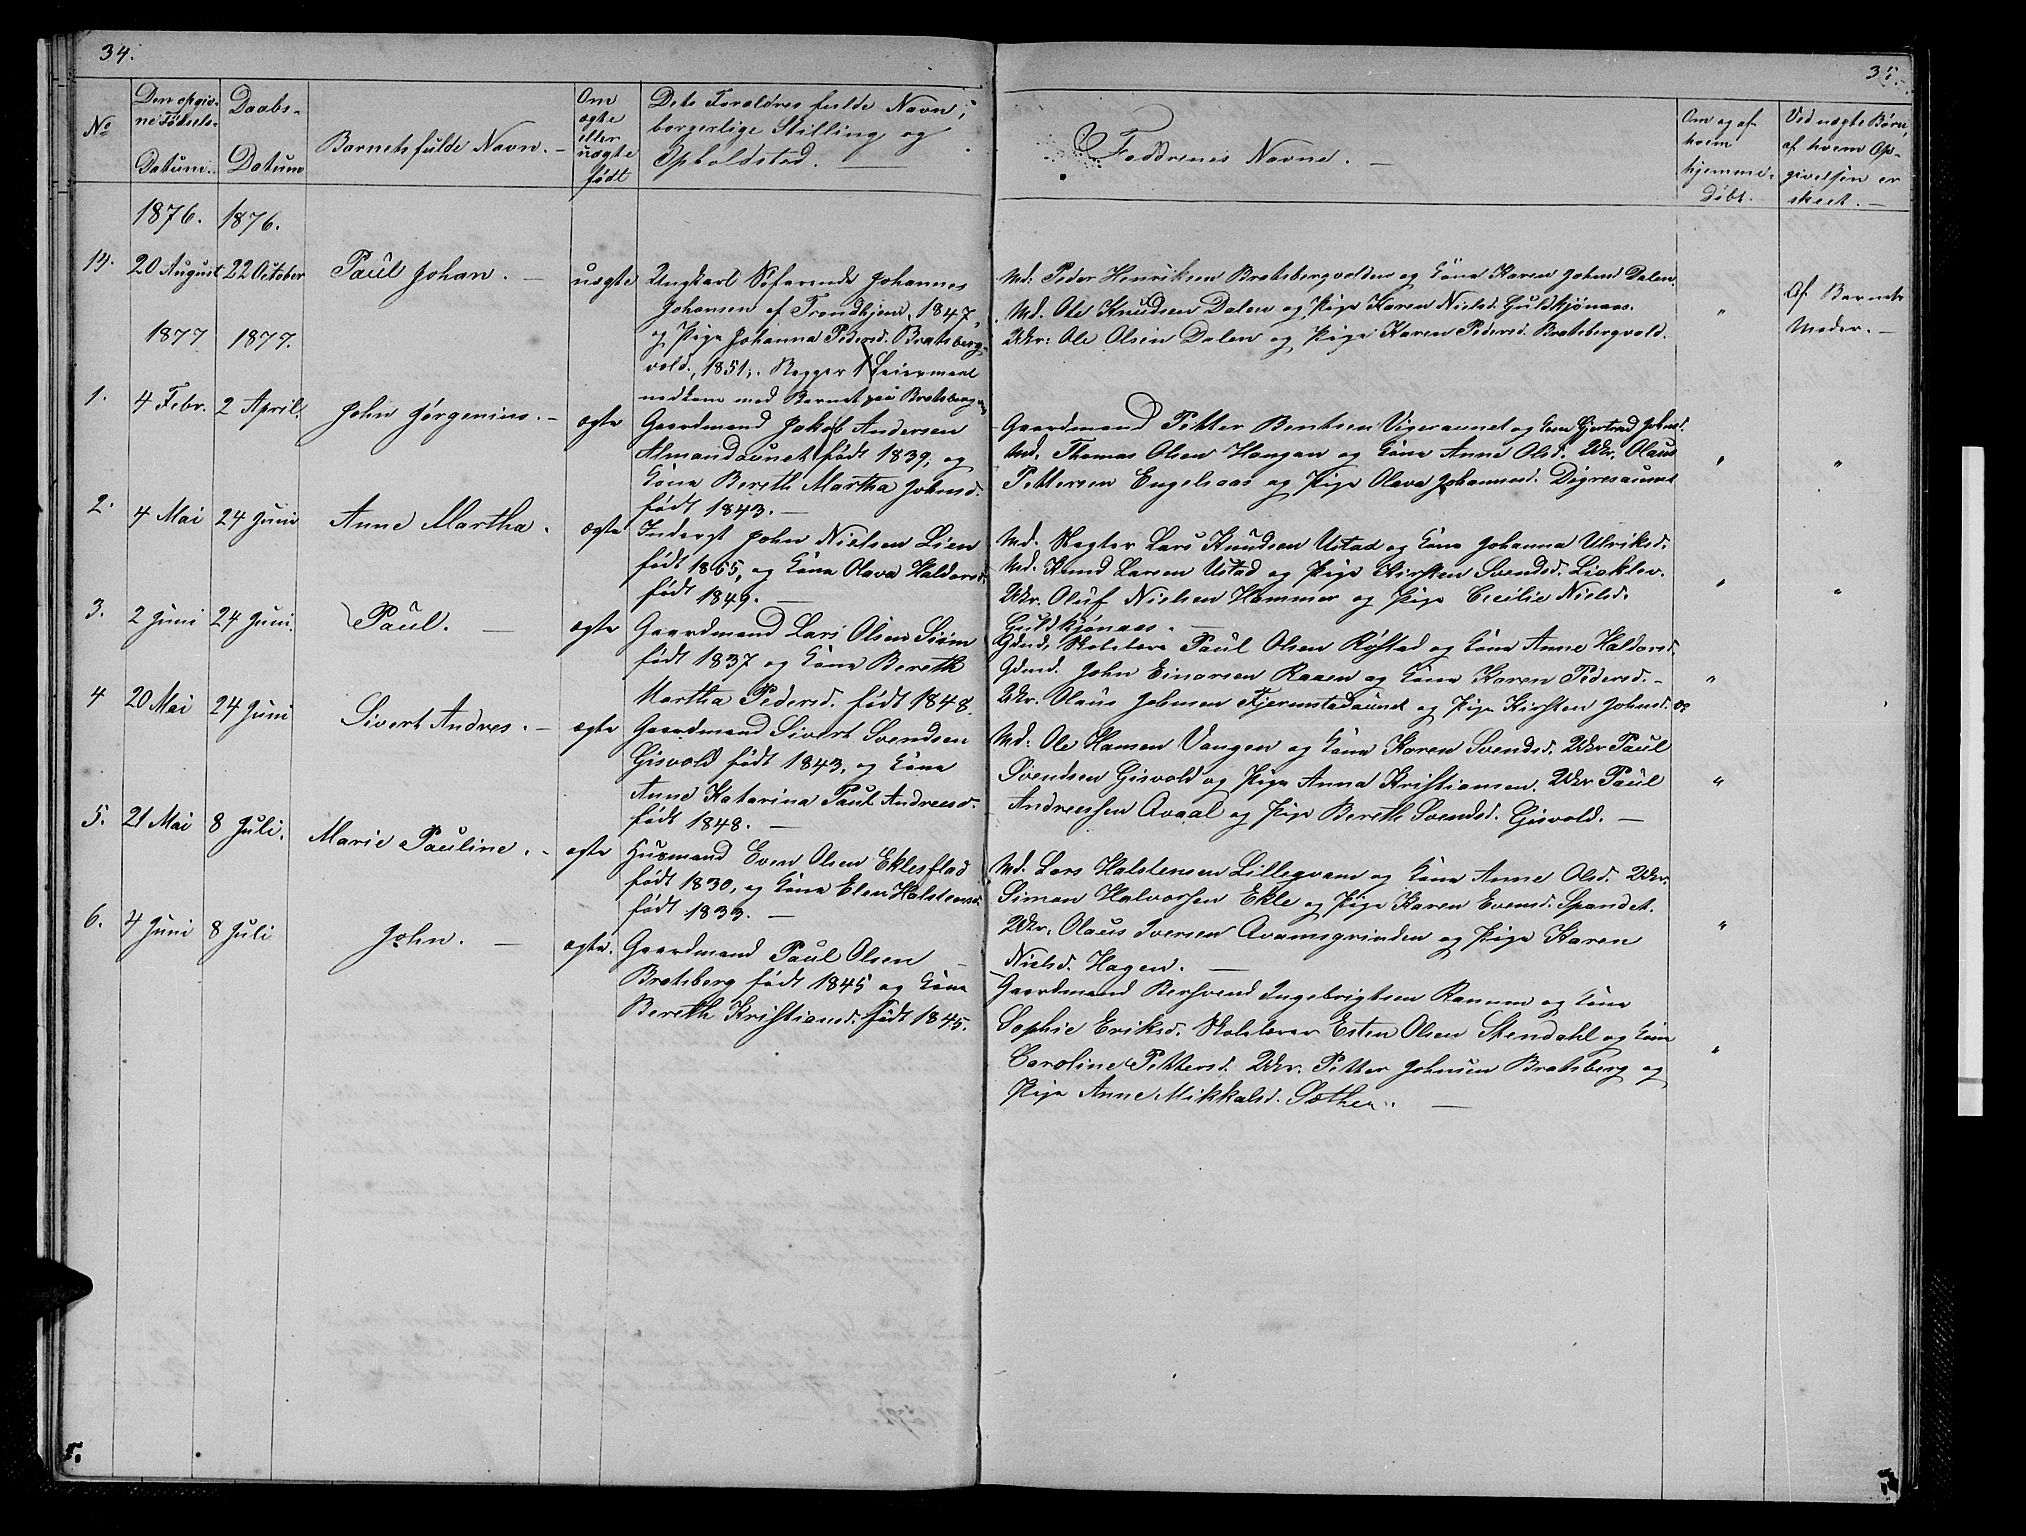 34.
No
Den opgiv-
ne Fødsels-
Datum.
Daabs-
Datum
Barnets fulde Navn. —
Om
ægte
eller
uægte
født
Dets Forældres fulde Navn,
borgerlige Stilling og
Opholdsted. —
1876. 1876.
14. 20 August 22 October Paul Johan. — uægte Ungkarl Søfarende Johannes
Johansen af Trondhjem, 1847,
og Pige Johanna Pedersd. Bratsberg-
vold, 1851. Begges 1 Leiermaal
nedkom med Barnet paa Bratsberg
1877 1877.
1. 4 Febr. 2 April. John Jørgenius. — ægte Gaardmand Jakob Andersen
Almandaunet født 1839, og
Kone Bereth Martha Johnsd.
født 1843. —
2. 4 Mai 24 Juni Anne Martha. ægte Inderst John Nielsen Lien
født 1855, og Kone Olava Haldorsd.
født 1849. —
3. 2 Juni 24 Juni. Paul. — ægte Gaardmand Lars Olsen Siem
født 1837 og Kone Bereth
Martha Pedersd. født 1848.
4 20 Mai 24 Juni Sivert Andreas. — ægte Gaardmand Sivert Svendsen
Gisvold født 1843, og Kone
Anne Katarina Paul Andreasd.
født 1848. —
5. 21 Mai 8 Juli. Marie Pauline. — ægte Husmand Even Olsen Eklesflad
født 1830, og Kone Elen Halstensd.
født 1833. —
6. 4 Juni 8 Juli John. — ægte. Gaardmand Paul Olsen
Bratsberg født 1845 og Kone
Bereth Kristiansd. født 1845.
35.
Faddrenes Navne. —
Om og af
hvem
hjemme-
døbt.
Ved uægte Børn,
af hvem Op-
givelsen er
skeet. —
Md. Peder Henriksen Bratsbergvolden og Kone Karen Johnsd. Dalen.
Md. Ole Knudsen Dalen og Pige Karen Nielsd. Guldkjønaas.
Ukr. Ole Olsen Dalen og Pige Karen Pedersd. Bratsbergvold.
"
Af Barnets
Moder. —
Gaardmand Petter Bentsen Vigeraunet og Kone Gjertrud Johnsd.
Md. Thomas Olsen Haugan og Kone Anne Olsd. Ukr. Olaus
Pettersen Engelsaas og Pige Olava Johannesd. Digresaunet
" "
Md. Regter Lars Knudsen Ustad og Kone Johanna Ulriksd.
Md. Knud Larsen Ustad og Pige Kirsten Svendsd. Lieklev.
Ukr. Oluf Nielsen Hammer og Pige Cecilie Nielsd.
Guldkjønaas. —
" "
Gdmd. Skolelærer Paul Olsen Røstad og Kone Anne Haldorsd.
Gdmd. John Einarsen Raaen og Kone Karen Pedersd. —
Ukr. Olaus Johnsen Fjermstadaunet og Pige Kirsten Johnsd. og
"
Md. Ole Hansen Vangen og Kone Karen Svendsd. Ukr Paul
Svendsen Gisvold og Pige Anna Kristiansen. Ukr Paul
Andreassen Avaal og Pige Bereth Svendsd. Gisvold. —
"
Md. Lars Halstensen Lillegvam og Kone Anne Olsd. Ukr.
Simon Halvorsen Ekle og Pige Karen Evensd. Spandet.
Ukr. Olaus Iversen Avamsgrinden og Pige Karen
Nielsd. Hagen. —
"
Gaardmand Bersvend Ingebrigtsen Ranum og Kone
Sophie Eriksd. Skolelærer Esten Olsen Stendahl og Kone
Caroline Pettersd. Ukr. Petter Johnsen Bratsberg og
Pige Anne Mikkalsd. Sæther. —
"